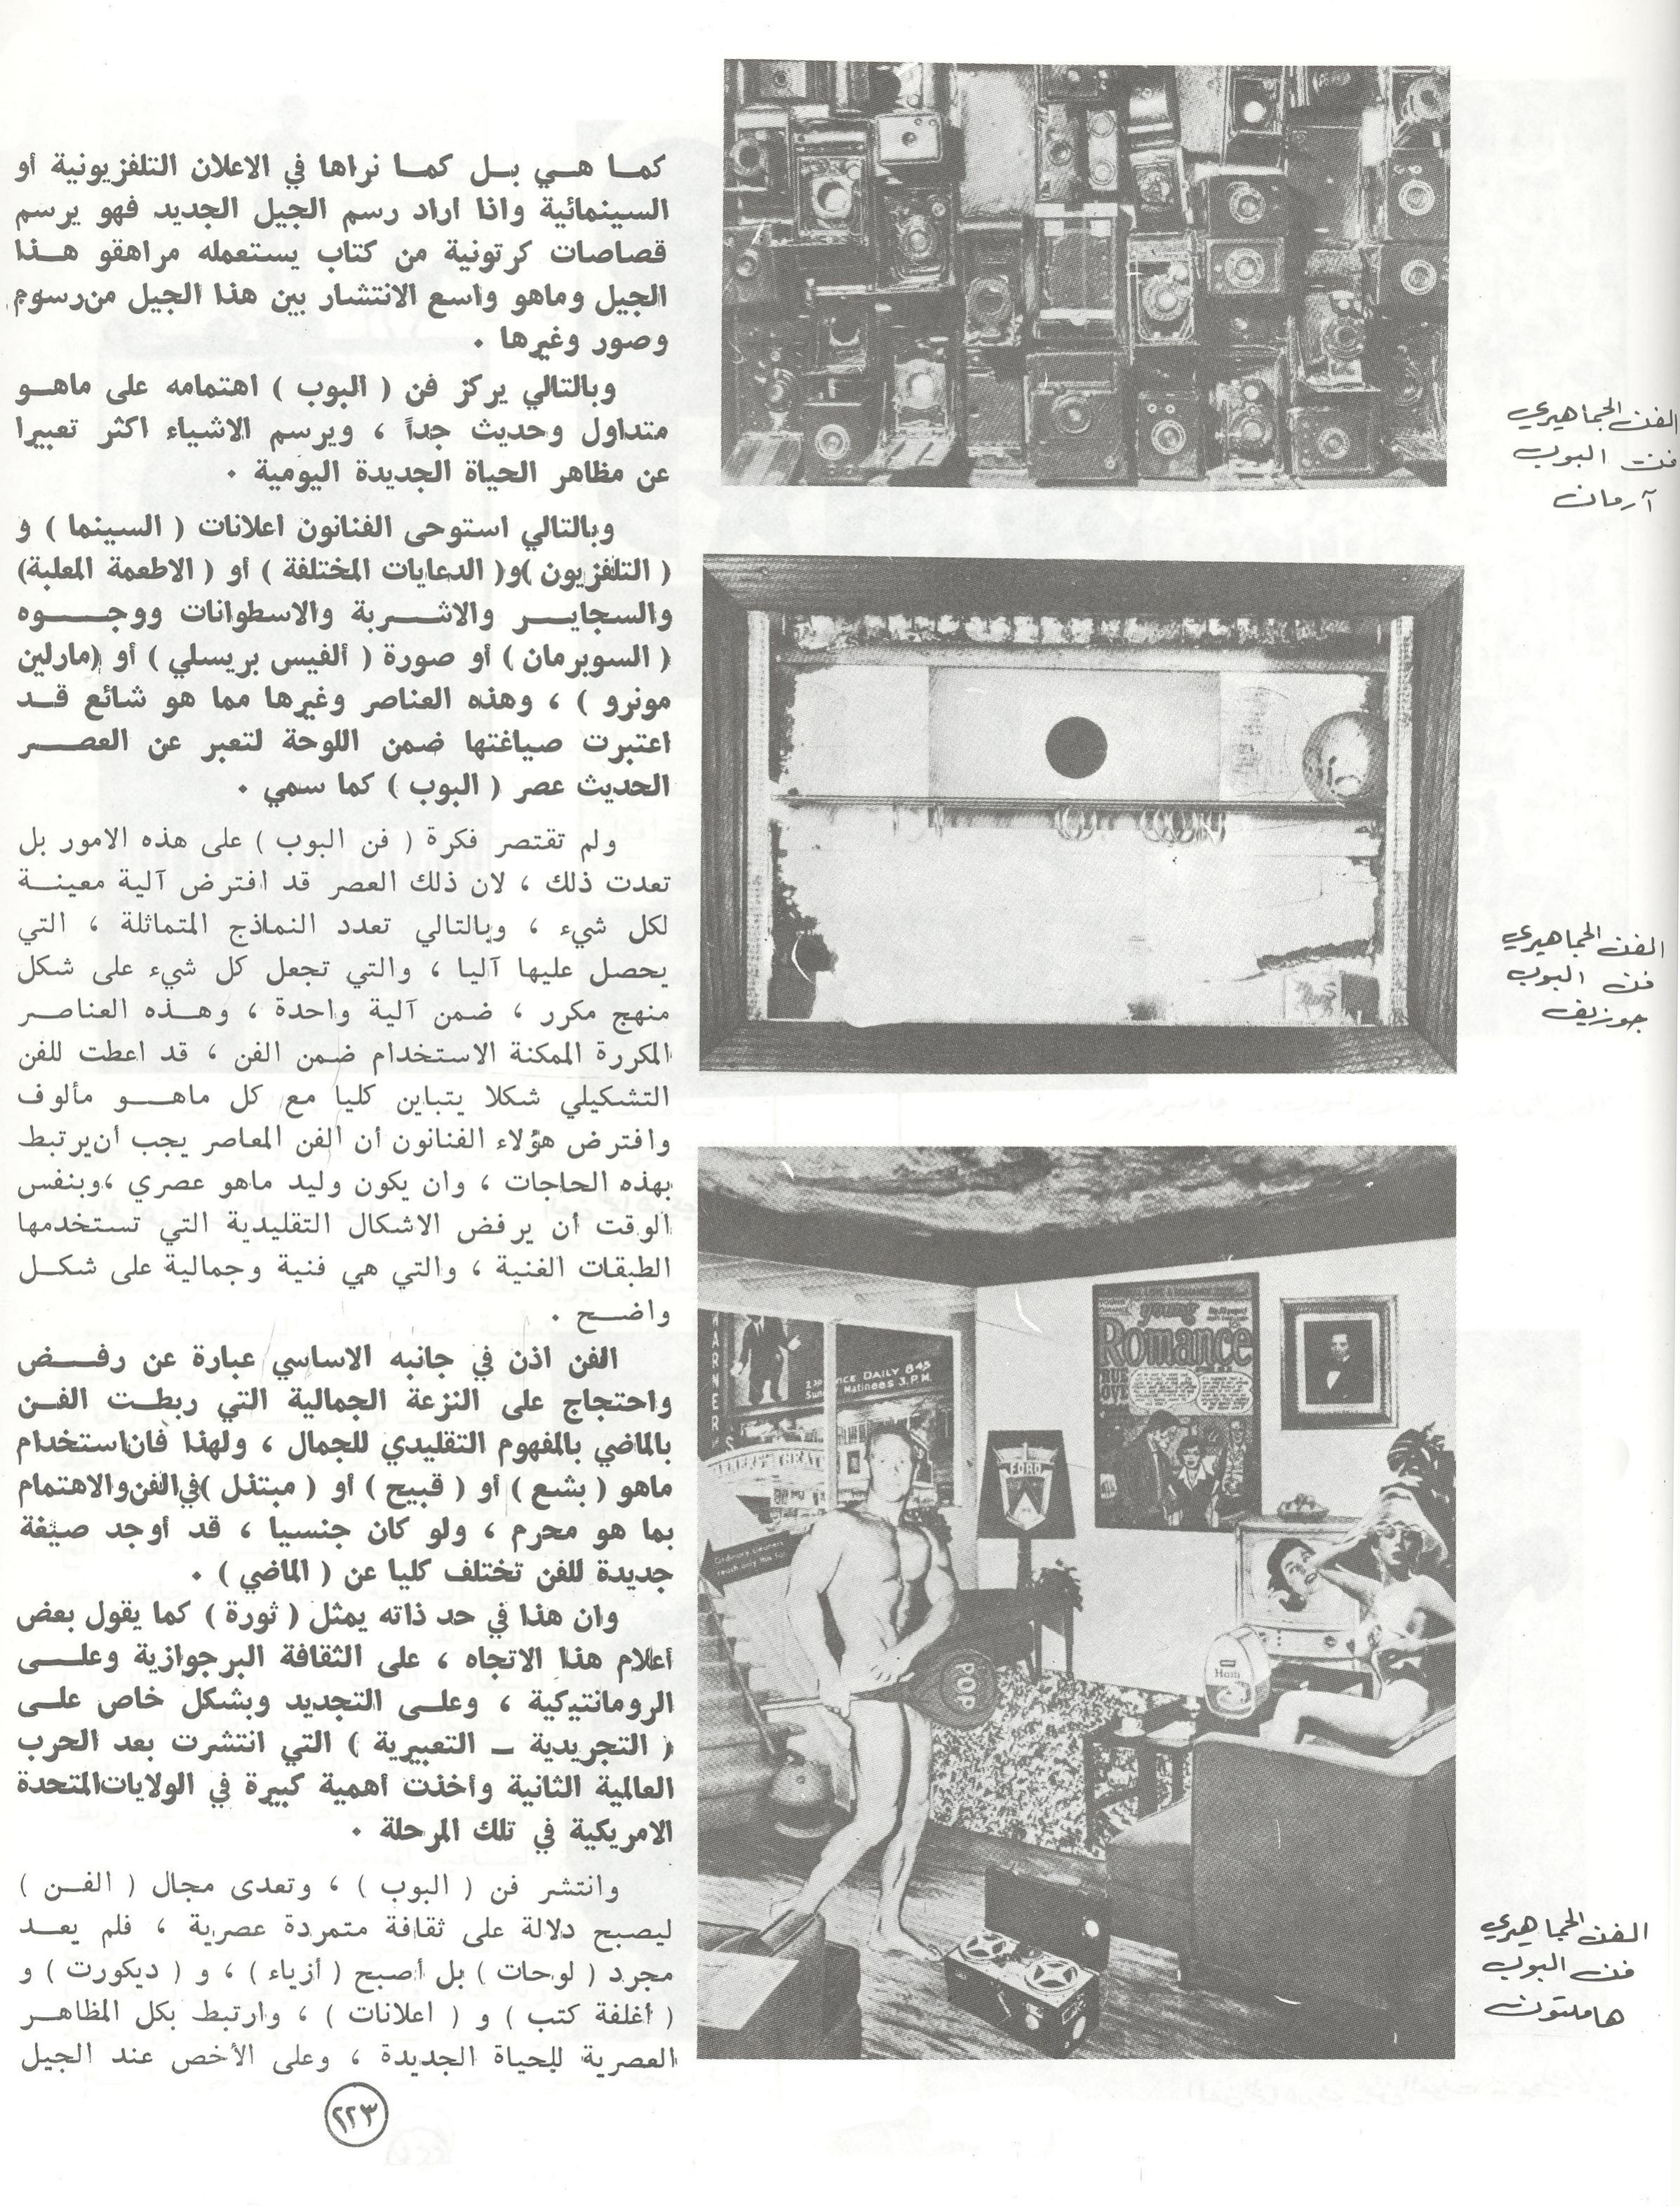 كما هي بل كما نراها في الاعلان التلفزيونية أو
السينمائية واذا اراد رسم الجيل الجديد فهو يرسم
قصاصات كرتونية من كتاب يستعمله مراهقو هذا
الجيل وماهو واسع الانتشار بين هذا الجيل من رسوم
وصور وغيرها .
وبالتالي يركز فن ( البوب ) اهتمامه على ماهو
متداول وحديث جداً ، ويرسم الاشياء اكثر تعبيرا
عن مظاهر الحياة الجديدة اليومية .
وبالتالي استوحى الفنانون اعلانات ( السينما ) و
( التلفزيون )و( الدعايات المختلفة ) أو ( الاطعمة المعلبة)
والسجاير والاشربة والاسطوانات ووجوه
( السوبرمان ) أو صورة ( ألفيس بريسلي ) أو (مارلين
مونرو ) ، وهذه العناصر وغيرها مما هو شائع قد
اعتبرت صياغتها ضمن اللوحة لتعبر عن العصر
الحديث عصر ( البوب ) كما سمي .
ولم تقتصر فكرة ( فن البوب ) على هذه الامور بل
تعدت ذلك ، لان ذلك العصر قد افترض آلية معينة
لكل شيء ، وبالتالي تعدد النماذج المتماثلة ، التي
يحصل عليها آليا ، والتي تجعل كل شيء على شكل
منهج مكرر ، ضمن آلية واحدة ، وهذه العناصر
المكررة الممكنة الاستخدام ضمن الفن ، قد اعطت للفن
التشكيلي شكلا يتباين كليا مع كل ماهو مألوف
وافترض هؤلاء الفنانون أن الفن المعاصر يجب أن يرتبط
بهذه الحاجات ، وان يكون وليد ماهو عصري ،وبنفس
الوقت أن يرفض الاشكال التقليدية التي تستخدمها
الطبقات الغنية ، والتي هي فنية وجمالية على شكل
واضح .
الفن اذن في جانبه الاساسي عبارة عن رفض
واحتجاج على النزعة الجمالية التي ربطت الفن
بالماضي بالمفهوم التقليدي للجمال ، ولهذا فان استخدام
ماهو ( بشع ) أو ( قبيح ) أو ( مبتذل )في الفن والاهتمام
بما هو محرم ، ولو كان جنسيا ، قد أوجد صيغة
جديدة للفن تختلف كليا عن ( الماضي ) .
وان هذا في حد ذاته يمثل ( ثورة ) كما يقول بعض
أعلام هذا الاتجاه ، على الثقافة البرجوازية وعلى
الرومانتيكية ، وعلى التجديد وبشكل خاص على
( التجريدية ـ التعبيرية ) التي انتشرت بعد الحرب
العالمية الثانية وأخذت أهمية كبيرة في الولايات المتحدة
الامريكية في تلك المرحلة .
وانتشر فن ( البوب ) ، وتعدى مجال ( الفن )
ليصبح دلالة على ثقافة متمردة عصرية ، فلم يعد
مجرد ( لوحات ) بل أصبح ( أزياء ) ، و ( ديكورت ) و
( أغلفة كتب ) و ( اعلانات ) ، وارتبط بكل المظاهر
العصرية للحياة الجديدة ، وعلى الأخص عند الجيل
٢٢٣
الفن الجماهيري
فن البوب
آرمان
الفن الجماهيري
فن البوب
جوزيف
الفن الجماهيري
فن البوب
هاملتون
WARNERS
NCE DAILY 8 45
Matinees 3. P.M.
Ordinary cleaners
reach only this far
FORD
Young
Romance
POP
Ham